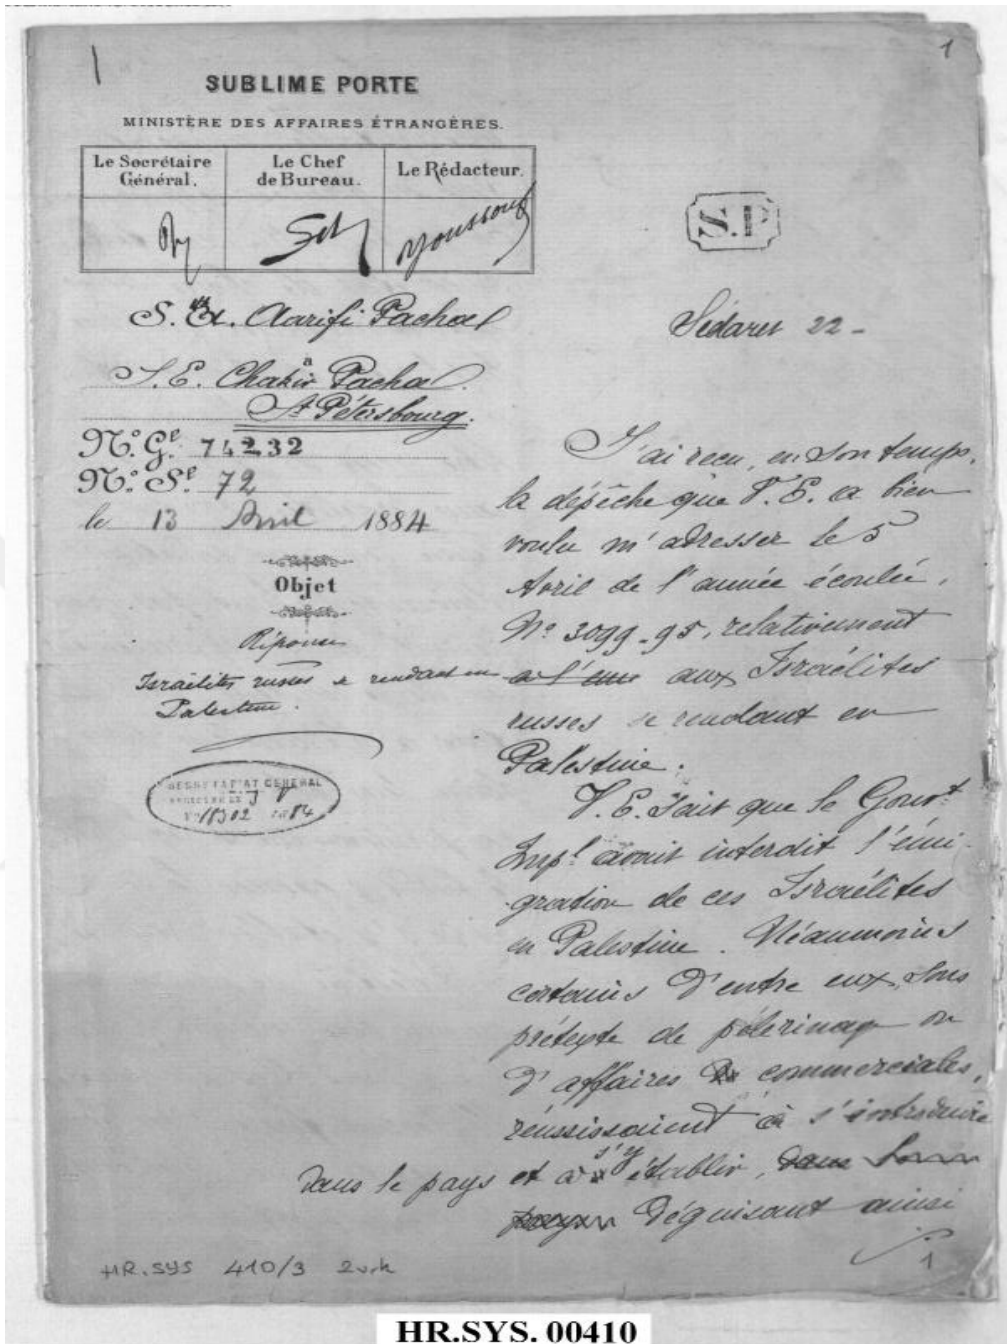 1
SUBLIME PORTE
MINISTÈRE DES AFFAIRES ÉTRANGÈRES.
Le Secrétaire Général.
Le Chef de Bureau.
Le Rédacteur.
Youssouf
S. Ex. Aarifi Pacha
à
S. E. Chakir Pacha
St Pétersbourg.
Nº Gl. 74232
Nº Sl. 72
le 13 Avril 1884
Objet
Réponse
Israélites russes se rendant en
Palestine.
SECRÉTARIAT GÉNÉRAL
Sédaret 22 -
J'ai reçu, en son temps,
la dépêche que V. E. a bien
voulu m'adresser le 5
Avril de l'année écoulée,
Nº 3099-95, relativement
aux Israélites
russes se rendant en
Palestine.
V. E. sait que le Gouvt
Impl avait interdit l'émi-
gration de ces Israélites
en Palestine. Néanmoins
certains d'entre eux, sous
prétexte de pélerinage ou
d'affaires commerciales,
réussissaient à s'introduire
dans le pays et à s'y établir,
déguisant ainsi
./.
1
HR.SYS 410/3 2vrk
HR.SYS. 00410